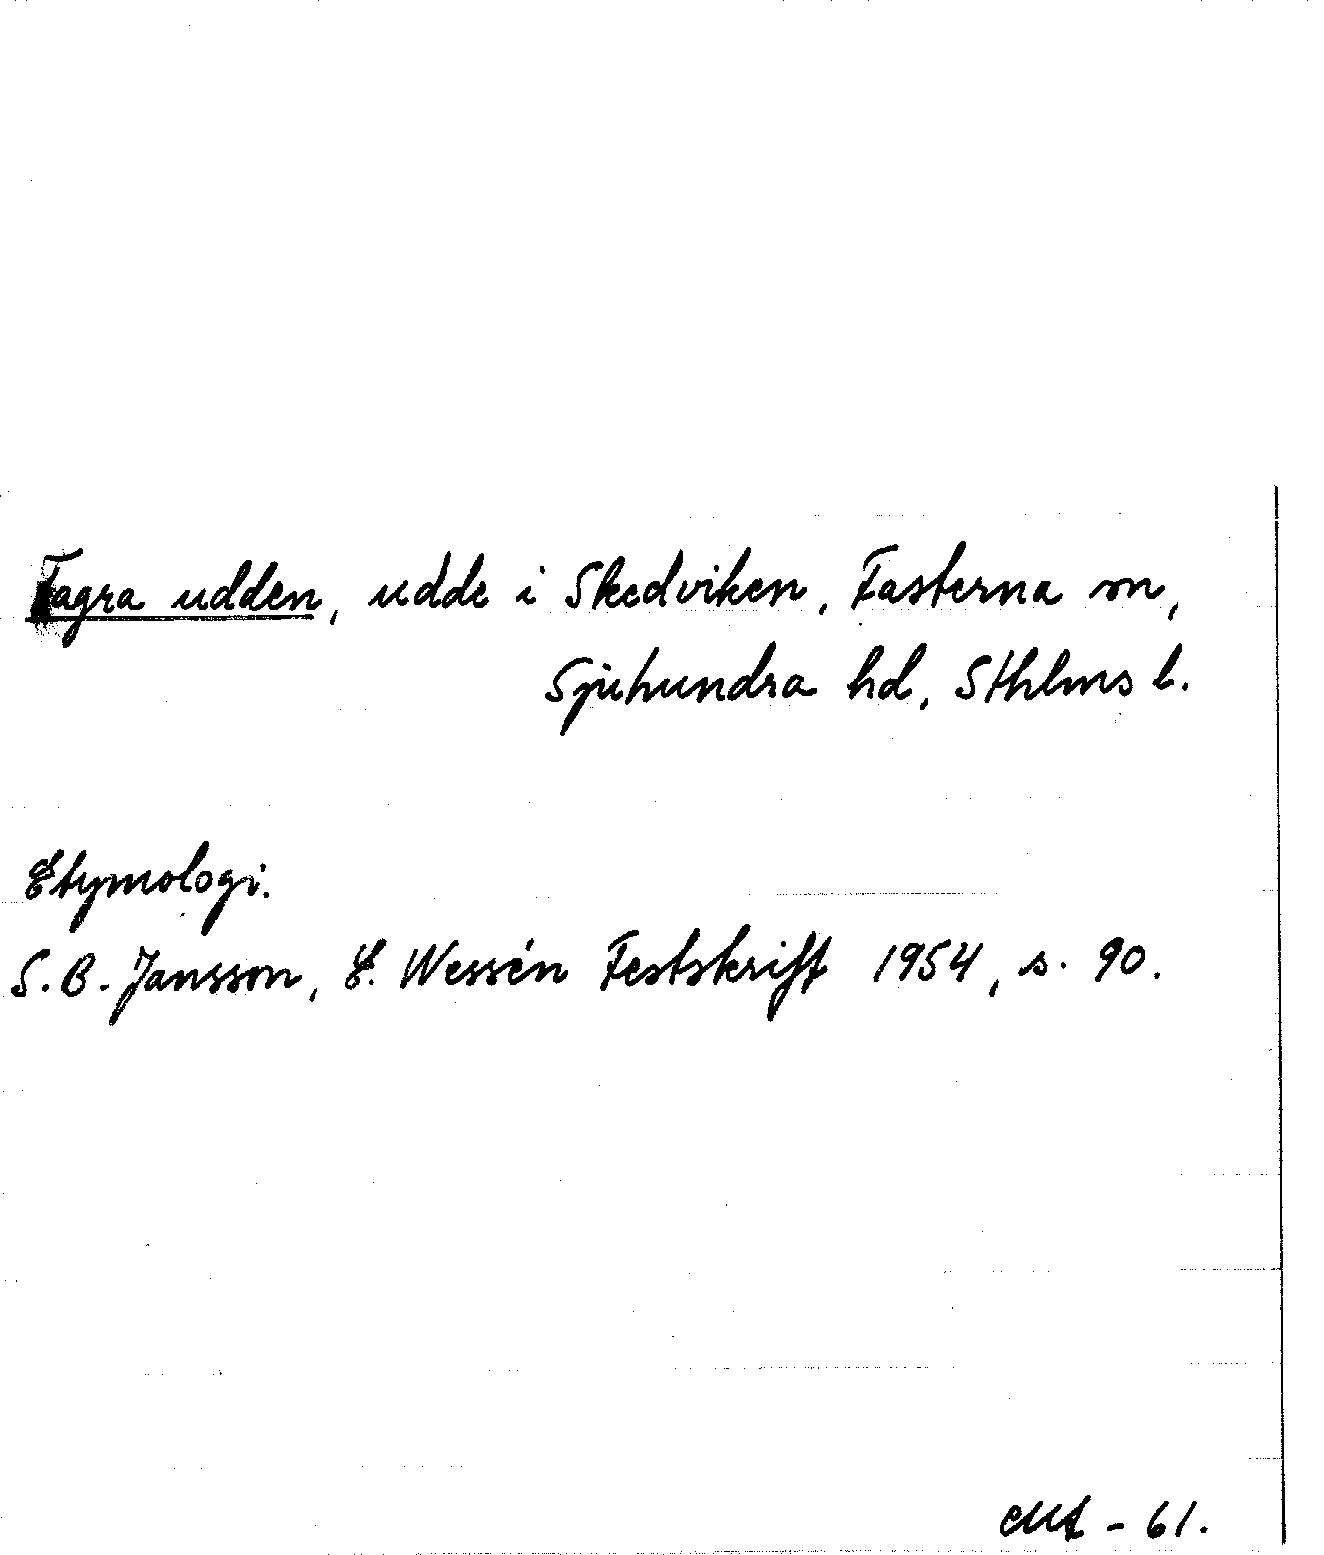 Fagra udden, udde i Skedviken, Fasterna sn,
Sjuhundra hd, Sthlms l.
Etymologi.
S.B. Jansson, E. Wessén Festskrift 1954, s. 90.
- 61.